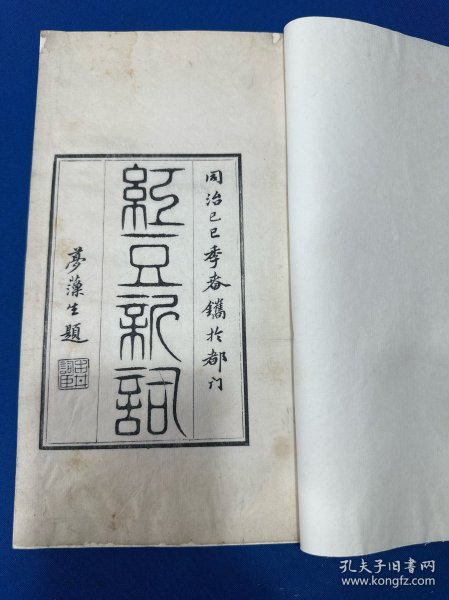 同治己巳季春鐫於都门
紅豆新詞
夢藻生題
孔夫子旧书网
www.kongfz.com